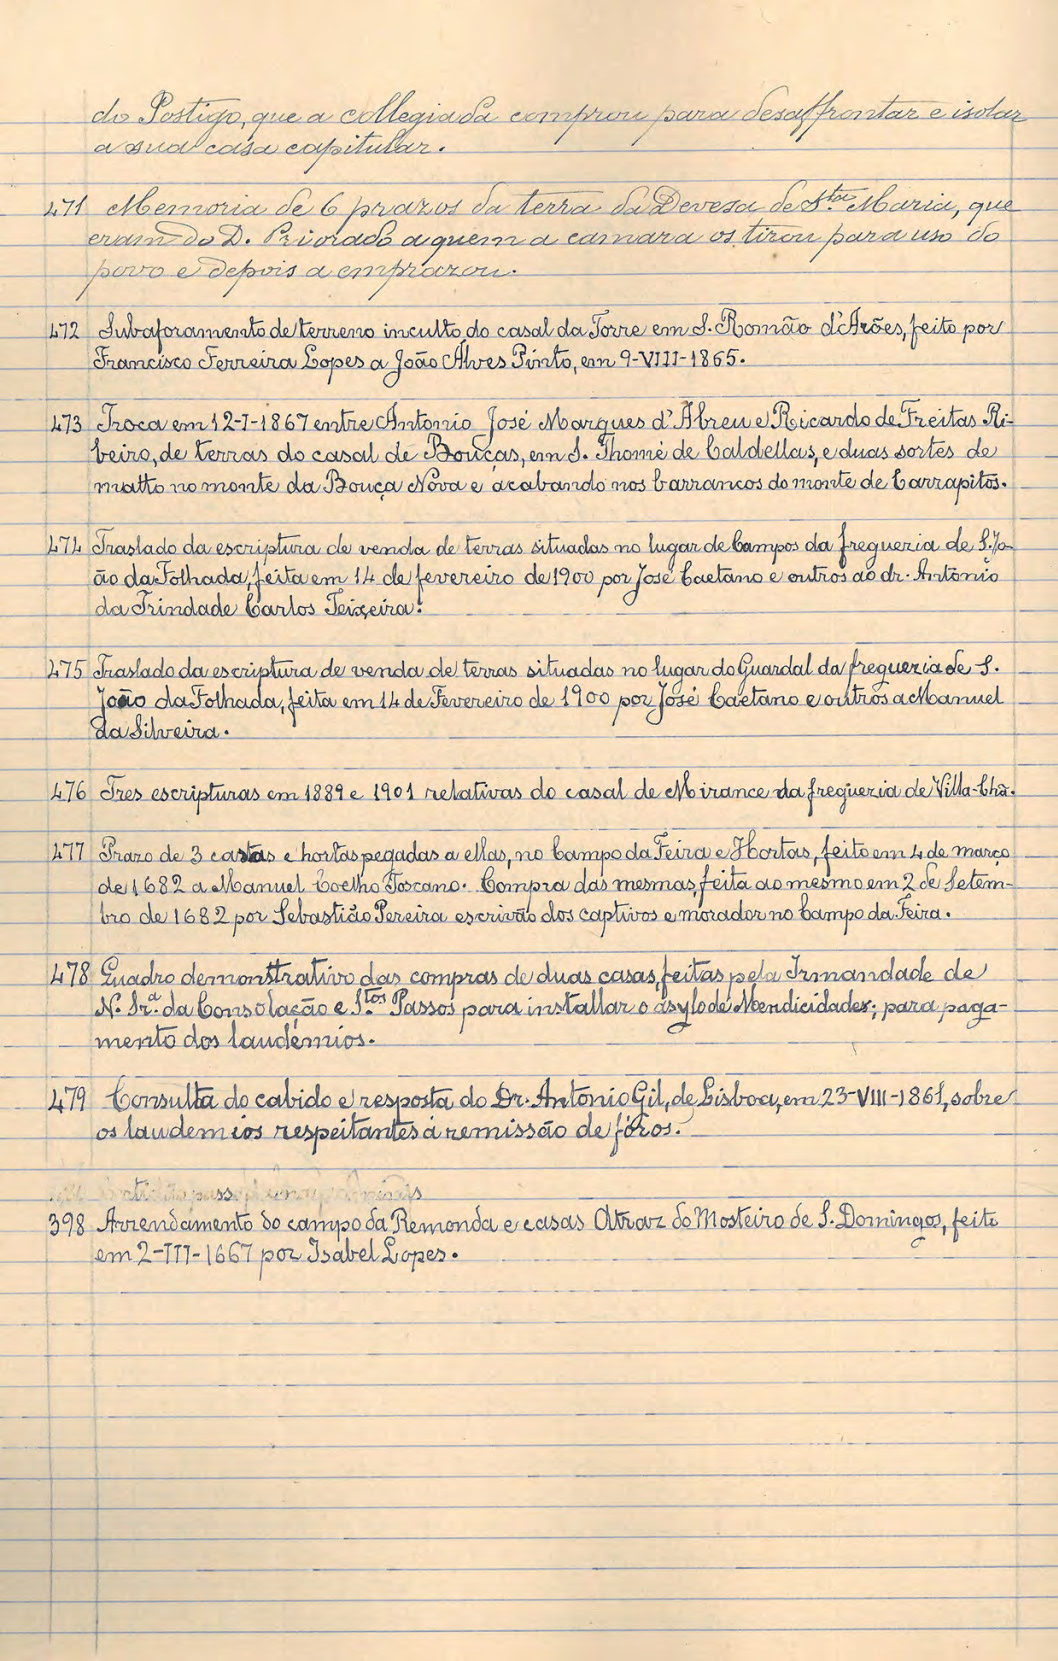 do Postigo, que a collegiada comprou para desaffrontar e isolar
a sua casa capitular.
471 Memoria de 6 prazos da terra da Devesa de Sta Maria, que
eram do D. Priorado a quem a camara os tirou para uso do
povo e depois a emprazou.
472 Subaforamento de terreno inculto, do casal da Torre em S. Romão d'Arões, feito por
Francisco Ferreira Lopes a João Alves Pinto, em 9-VIII-1865.
473 Troca em 12-I-1867 entre Antonio José Marques d'Abreu e Ricardo de Freitas Ri-
beiro, de terras do casal de Bouças, em S. Thomé de Caldellas, e duas sortes de
matto no monte da Bouça Nova e acabando nos barrancos do monte de Carrapitos.
474 Traslado da escriptura de venda de terras situadas no lugar de Campos da freguezia de S. Jo-
ão da Folhada, feita em 14 de fevereiro de 1900 por José Caetano e outros ao dr. Antonio
da Trindade Carlos Teixeira.
475 Traslado da escriptura de venda de terras situadas no lugar do Guardal da freguezia de S.
João da Folhada, feita em 14 de Fevereiro de 1900 por José Caetano e outros a Manuel
da Silveira.
476 Tres escripturas em 1889 e 1901 relativas do casal de Mirance da freguezia de Villa-Chã.
477 Prazo de 3 casas e hortas pegadas a ellas, no Campo da Feira e Hortas, feito em 4 de março
de 1682 a Manuel Coelho Toscano. Compra das mesmas, feita ao mesmo em 2 de Setem-
bro de 1682 por Sebastião Pereira escrivão dos captivos e morador no Campo da Feira.
478 Quadro demonstrativo das compras de duas casas, feitas pela Irmandade de
N. Sr.a da Consolação e S.tos Passos para installar o asylo de Mendicidades; para paga-
mento dos laudémios.
479 Consulta do cabido e resposta do Dr. Antonio Gil, de Lisboa, em 23-VIII-1861, sobre
os laudemios respeitantes á remissão de fóros.
398 Arrendamento do campo da Remonda e casas Atraz do Mosteiro de S. Domingos, feito
em 2-III-1667 por Isabel Lopes.